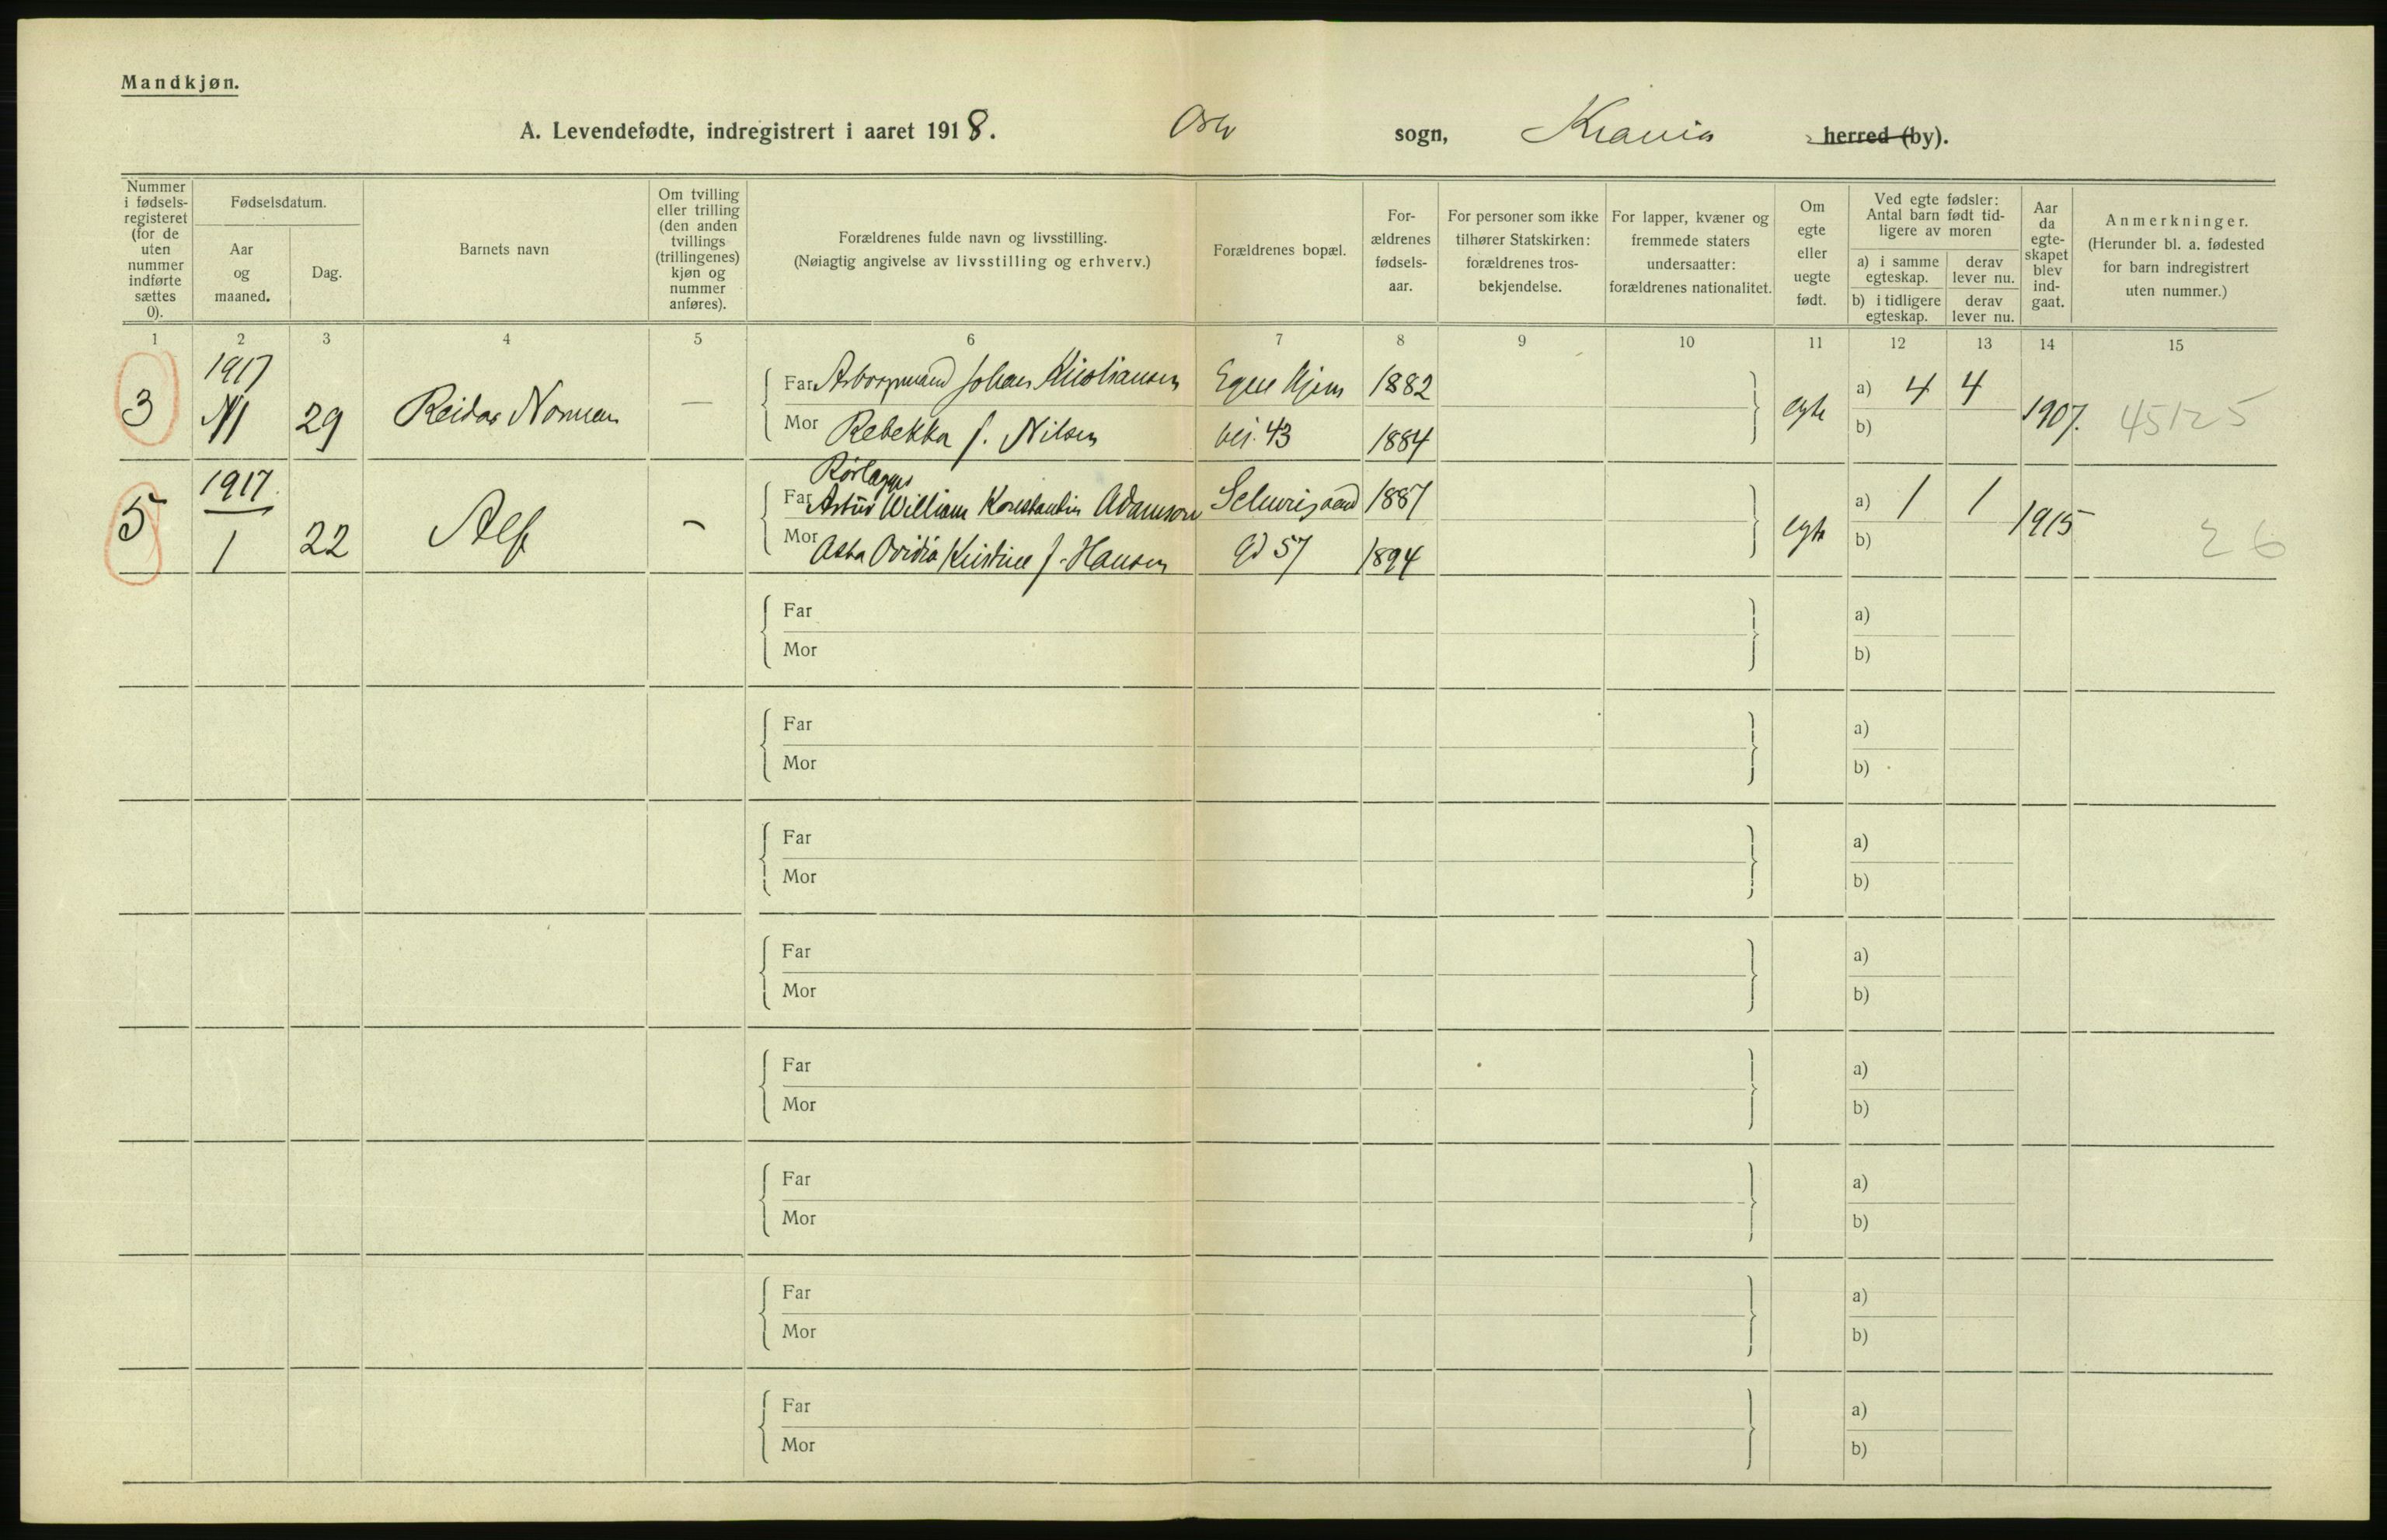 Mandkjøn.
A. Levendefødte, indregistrert i aaret 1918. Oslo sogn, Krania herred (by).
Nummer i fødselsregisteret (for de uten nummer indførte sættes 0).
Fødselsdatum.
Aar og maaned.
Dag.
Barnets navn
Om tvilling eller trilling (den anden tvillings (trillingenes) kjøn og nummer anføres).
Forældrenes fulde navn og livsstilling.
(Nøiagtig angivelse av livsstilling og erhverv.)
Forældrenes bopæl.
For-ældrenes fødsels-aar.
For personer som ikke tilhører Statskirken: forældrenes tros-bekjendelse.
For lapper, kvæner og fremmede staters undersaatter: forældrenes nationalitet.
Om egte eller uegte født.
Ved egte fødsler: Antal barn født tid-ligere av moren
a) i samme egteskap.
derav lever nu.
b) i tidligere egteskap.
derav lever nu.
Aar da egte-skapet blev ind-gaat.
Anmerkninger.
(Herunder bl. a. fødested for barn indregistrert uten nummer.)
1 2 3 4 5 6 7 8 9 10 11 12 13 14 15
3 1917 29 Reidar Norman —
Far Johan Kristiansen Egne Hjem 1882
Mor Rebekka f. Nilsen vei. 43 1884
egte a) 4 4 b) 1907. 45125
5 1917 1 22 Alf -
Rørlægger
Far Artur William Konstantin Adamson 1887
Mor Asta Ovidia Kristine f. Hansen gd 57 1894
egte a) 1 1 b) 1915 26
Far a)
Mor b)
Far a)
Mor b)
Far a)
Mor b)
Far a)
Mor b)
Far a)
Mor b)
Far a)
Mor b)
Far a)
Mor b)
Far a)
Mor b)